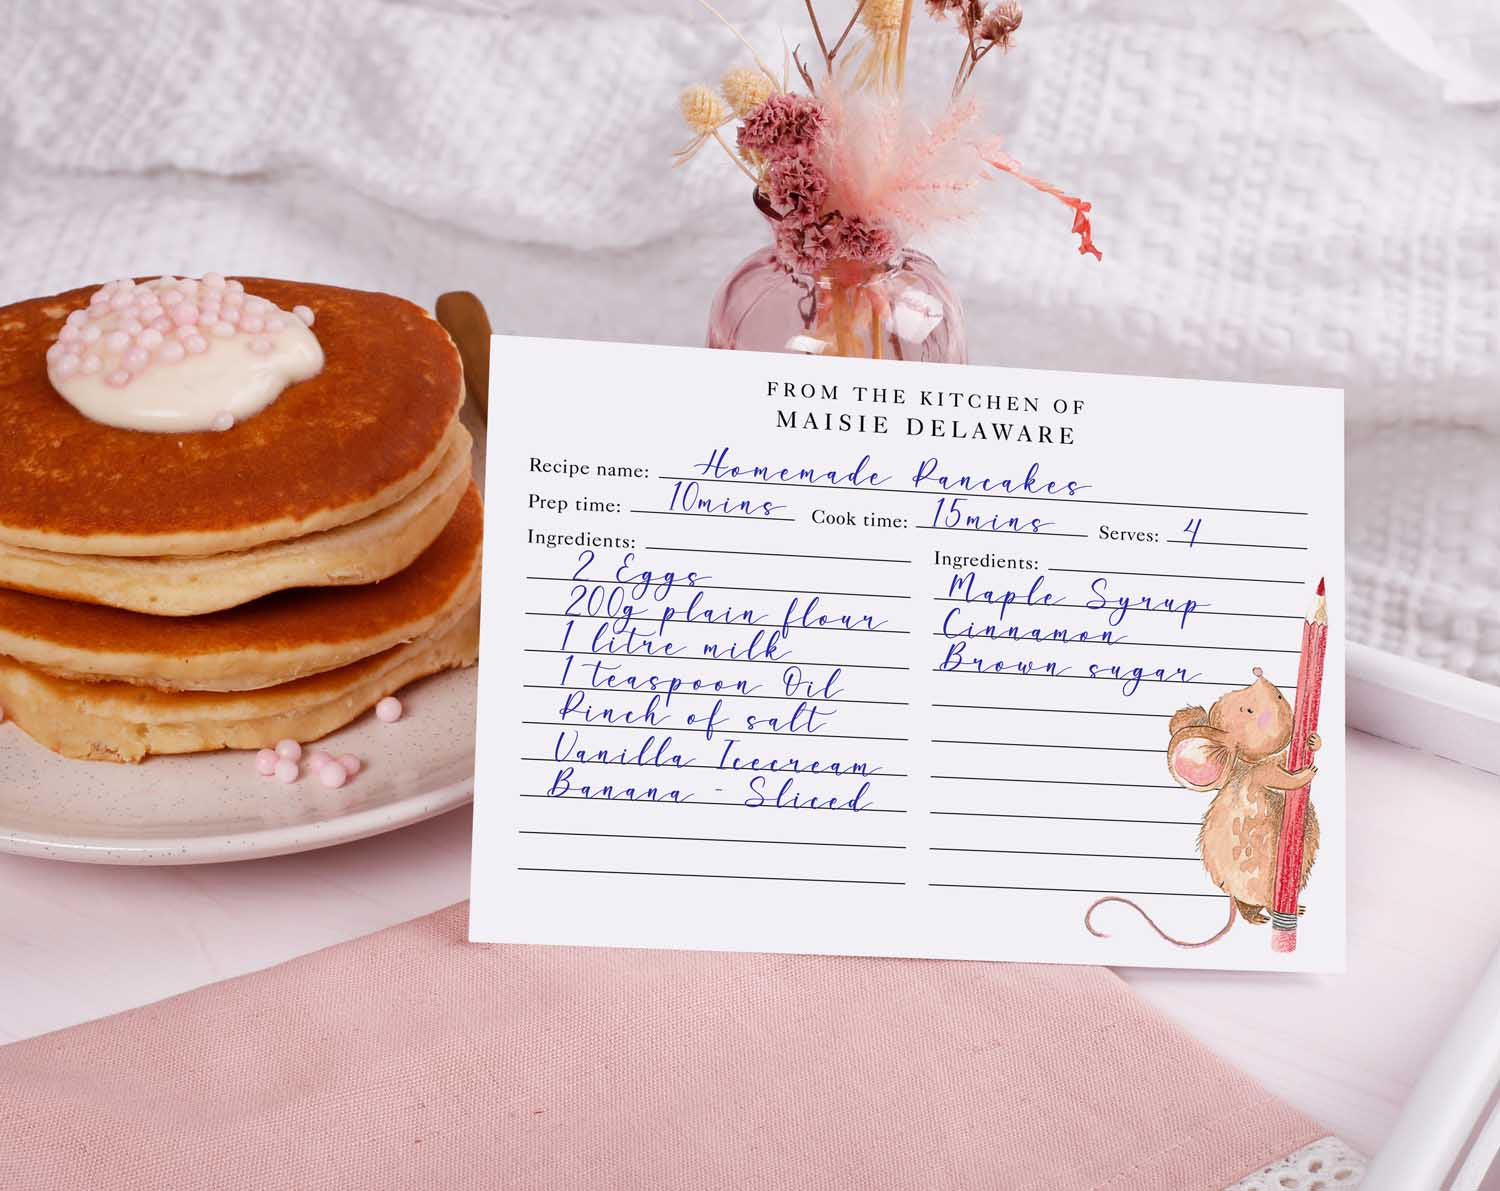 FROM THE KITCHEN OF
MAISIE DELAWARE
Recipe name: Homemade Pancakes
Prep time: 10mins Cook time: 15mins Serves: 4
Ingredients:
2 Eggs
200g plain flour
1 litre milk
1 teaspoon Oil
Pinch of salt
Vanilla Icecream
Banana - Sliced
Ingredients:
Maple Syrup
Cinnamon
Brown sugar